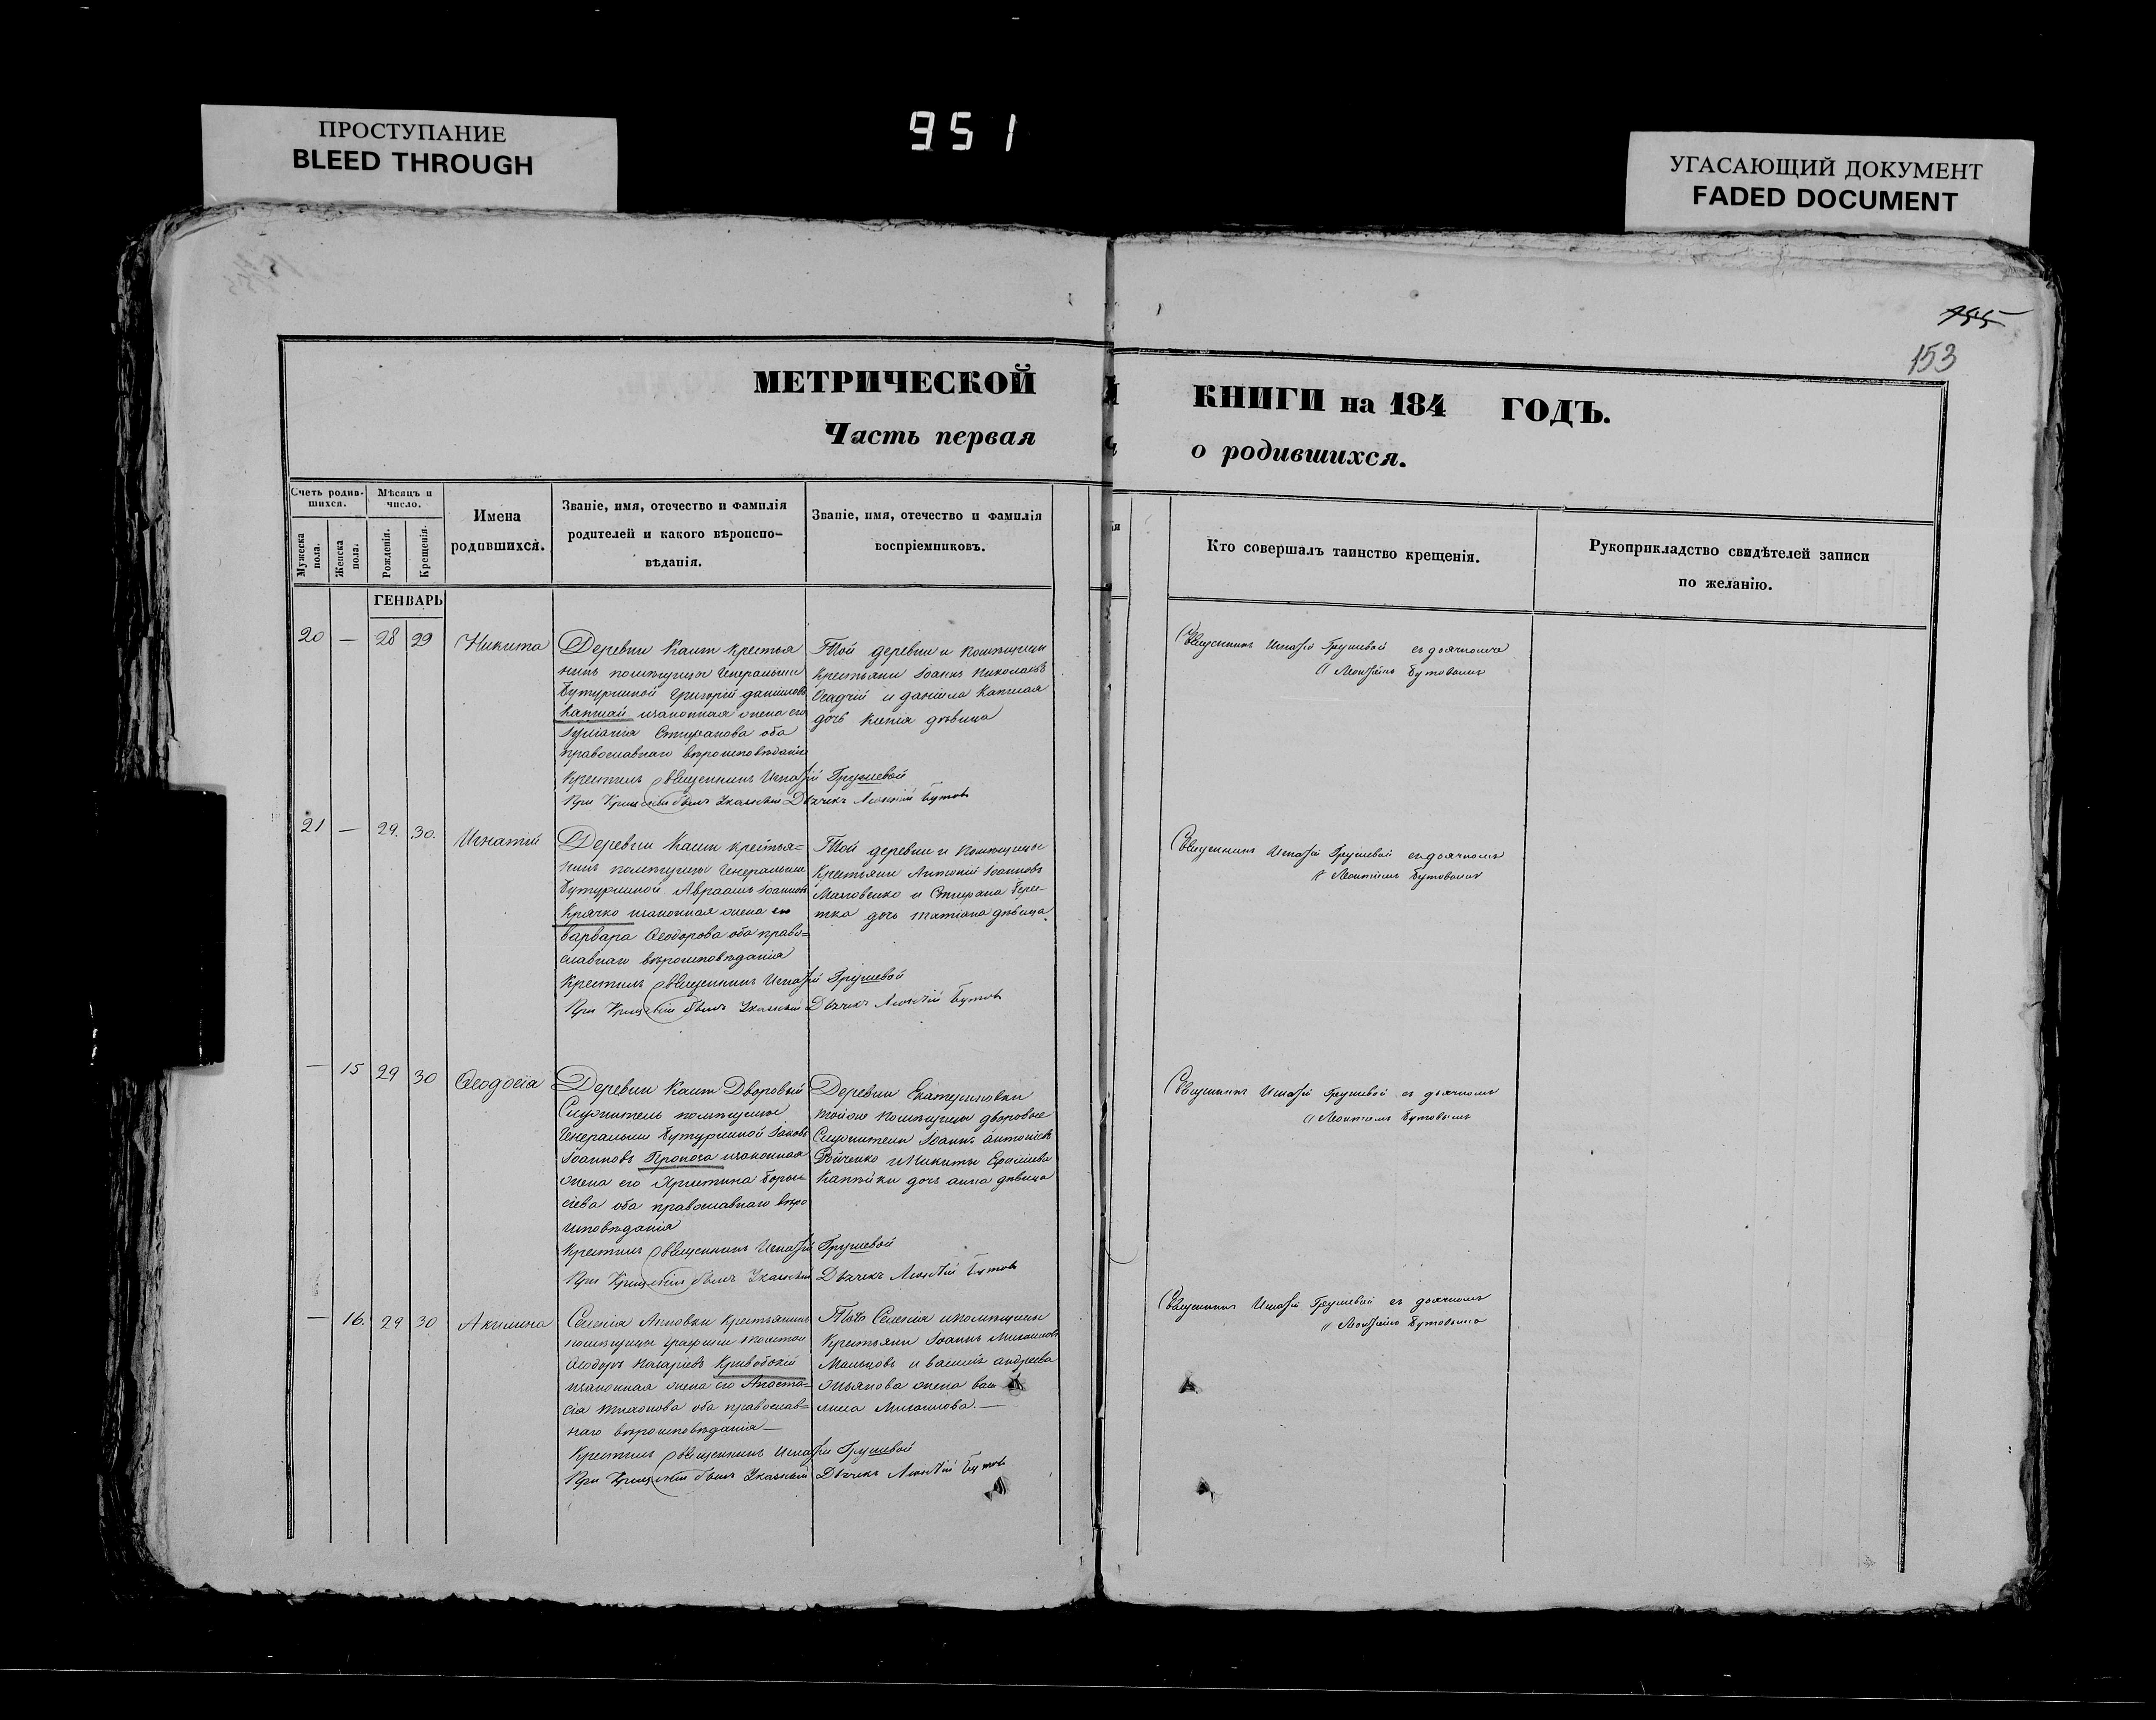 951
ПРОСТУПАНИЕ
BLEED THROUGH
УГАСАЮЩИЙ ДОКУМЕНТ
FADED DOCUMENT
155
153
МЕТРИЧЕСКОЙ КНИГИ на 184 ГОДЪ.
Часть первая о родившихся.
Счетъ родив-
шихся.
Мужеска пола.
Женска пола.
Мѣсяцъ и
число.
Рожденія.
Крещенія.
Имена
родившихся.
Званіе, имя, отечество и фамилія
родителей и какого вѣроиспо-
вѣданія.
Званіе, имя, отечество и фамилія
воспріемниковъ.
Кто совершалъ таинство крещенія.
Рукоприкладство свидѣтелей записи
по желанію.
ГЕНВАРЬ
20 — 28 29 Никита
Деревни Каит крестья
нинъ помѣщицы Генеральши
Бутурлиной Григорій даніиловъ
Капшай изаконная жена его
Стефанова оба
православнаго вѣроисповѣданія
Той деревни и помѣщицы
Крестьяни Іоаннъ Николаевъ
и даніила Капшая
дочь дѣвица
Крестилъ священникъ Игнатій Грушевой
При Крещеніи былъ Указный Дьячекъ Леонтій Бутов
Священникъ Игнатій Грушевой съ дьячкомъ
Леонтіемъ Бутовымъ
21 — 29. 30. Игнатій
Деревни Каит крестья=
нинъ помѣщицы Генеральши
Бутурлиной Авраамъ Іоанновъ
Крячко изаконная жена его
варвара Ѳеодорова оба право=
славнаго вѣроисповѣданія
Той деревни и помѣщицы
Крестьяни Антоній Іоанновъ
и Стефана
дочь татіана дѣвица.
Крестилъ священникъ Игнатій Грушевой
При Крещеніи былъ Указный Дьячекъ Леонтій Бутов
Священникъ Игнатій Грушевой съ дьячкомъ
Леонтіемъ Бутовымъ
— 15 29 30 Ѳеодосіа
Деревни Каит Дворовый
Служитель помѣщицы
Генеральши Бутурлиной Іаковъ
Іоанновъ изаконная
жена его Христина Бори=
сіева оба православнаго вѣро
исповѣданія
Деревни Екатериновки
тойже помѣщицы дворовые
Служители Іоаннъ антоніевъ
и Никиты
дочь анна дѣвица
Крестилъ священникъ Игнатій Грушевой
При Крещеніи былъ Указный Дьячекъ Леонтій Бутов
Священникъ Игнатій Грушевой съ дьячкомъ
Леонтіемъ Бутовымъ
— 16. 29 30 Акилина
Селенія Анновки Крестьянинъ
помѣщицы графини толстой
Ѳеодоръ назаріевъ Кривобокій
изаконная жена его Анаста=
сіа тихонова оба православ=
наго вѣроисповѣданія —
Тогò Селенія ипомѣщицы
Крестьяни Іоаннъ Михаиловъ
Мальцовъ и андреева
жена васи
лиса Михаилова. —
Крестилъ священникъ Игнатій Грушевой
При Крещеніи былъ Указный Дьячекъ Леонтій Бутов
Священникъ Игнатій Грушевой съ дьячкомъ
Леонтіемъ Бутовымъ